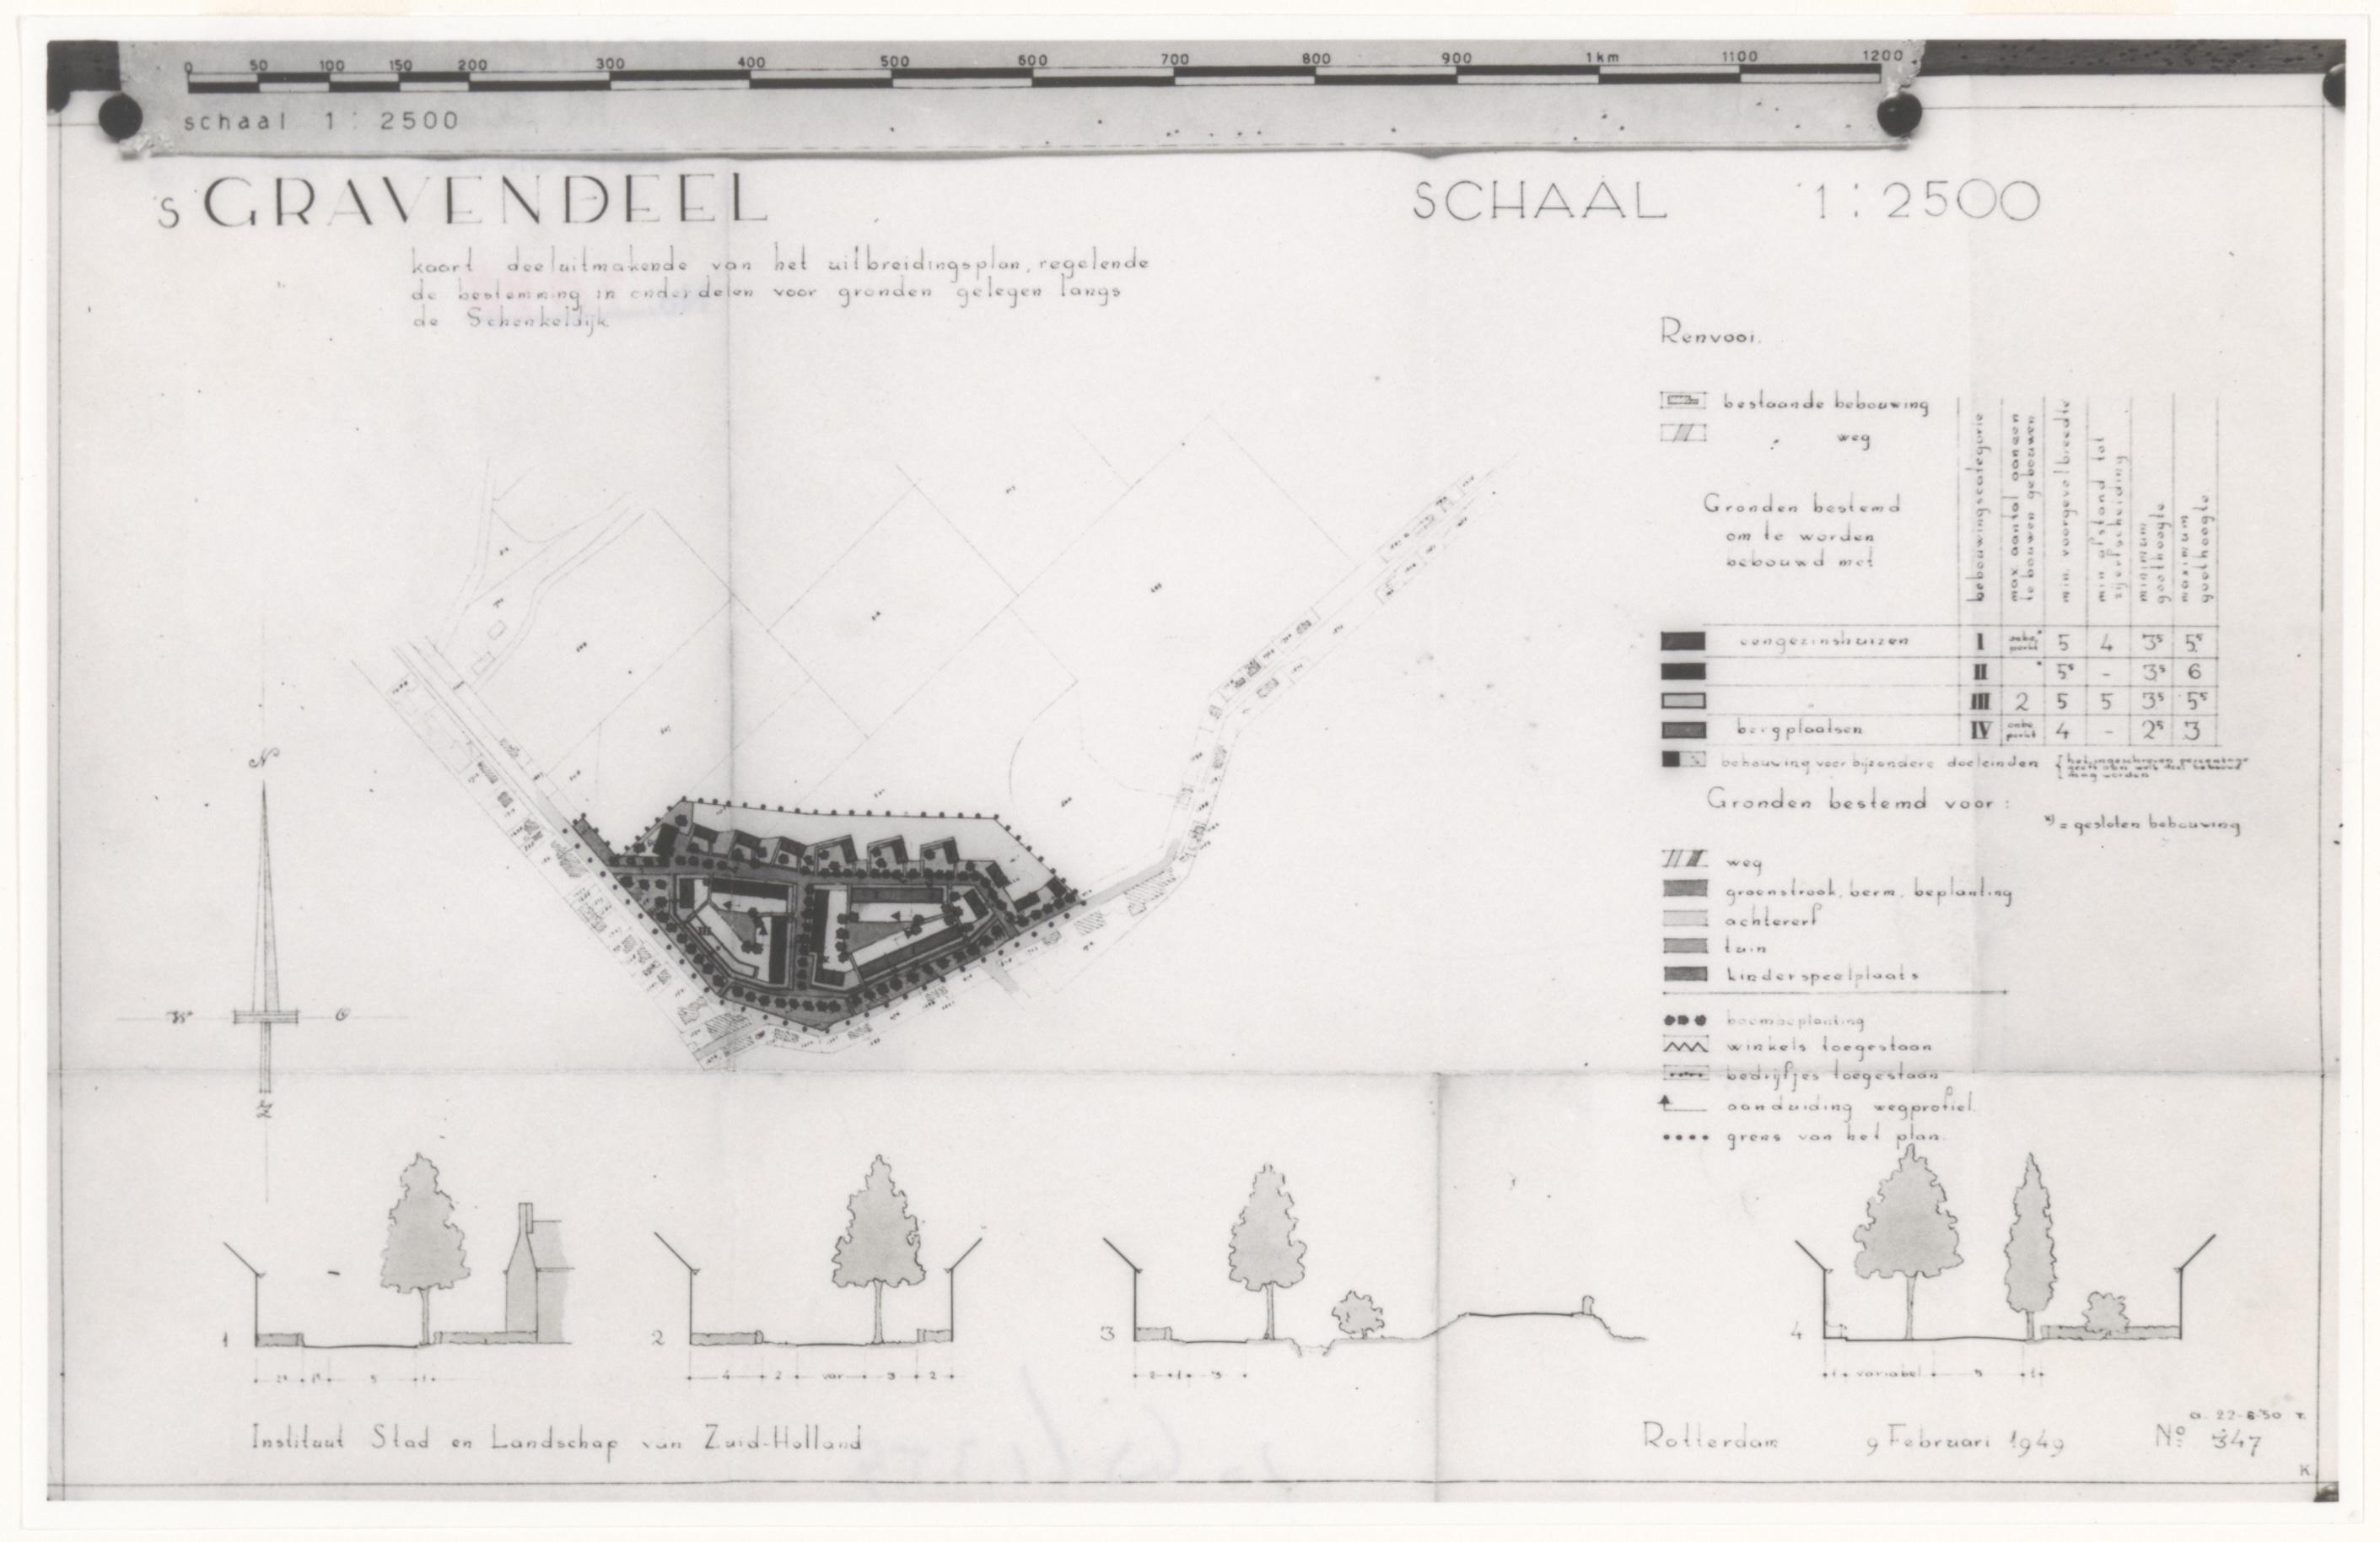 0 50 100 150 200 300 400 500 600 700 800 900 1km 1100 1200
schaal 1 : 2500
's GRAVENDEEL
SCHAAL 1 : 2500
kaart deeluitmakende van het uitbreidingsplan, regelende
de bestemming in onderdelen voor gronden gelegen langs
de Schenkeldijk
Renvooi.
bestaande bebouwing
" weg
Gronden bestemd
om te worden
bebouwd met
bebouwingscategorie
max aantal aaneen
te bouwen gebouwen
min. voorgevelbreedte
min afstand tot
zijerfscheiding
minimum
goothoogte
maximum
goothoogte
eengezinshuizen I onbeperkt * 5 4 3⁵ 5⁵
II * 5⁵ - 3⁵ 6
III 2 5 5 3⁵ 5⁵
bergplaatsen IV onbeperkt 4 - 2⁵ 3
bebouwing voor bijzondere doeleinden
Gronden bestemd voor :
*) = gesloten bebouwing
weg
groenstrook, berm, beplanting
achtererf
tuin
kinderspeelplaats
boombeplanting
winkels toegestaan
bedrijfjes toegestaan
aanduiding wegprofiel
grens van het plan.
N
W O
Z
1
2
4 2 var 3 2
3
2 1 3
4
1 variabel 3 1
Instituut Stad en Landschap van Zuid-Holland
Rotterdam 9 Februari 1949
a. 22-6-50 T.
Nº 347
K